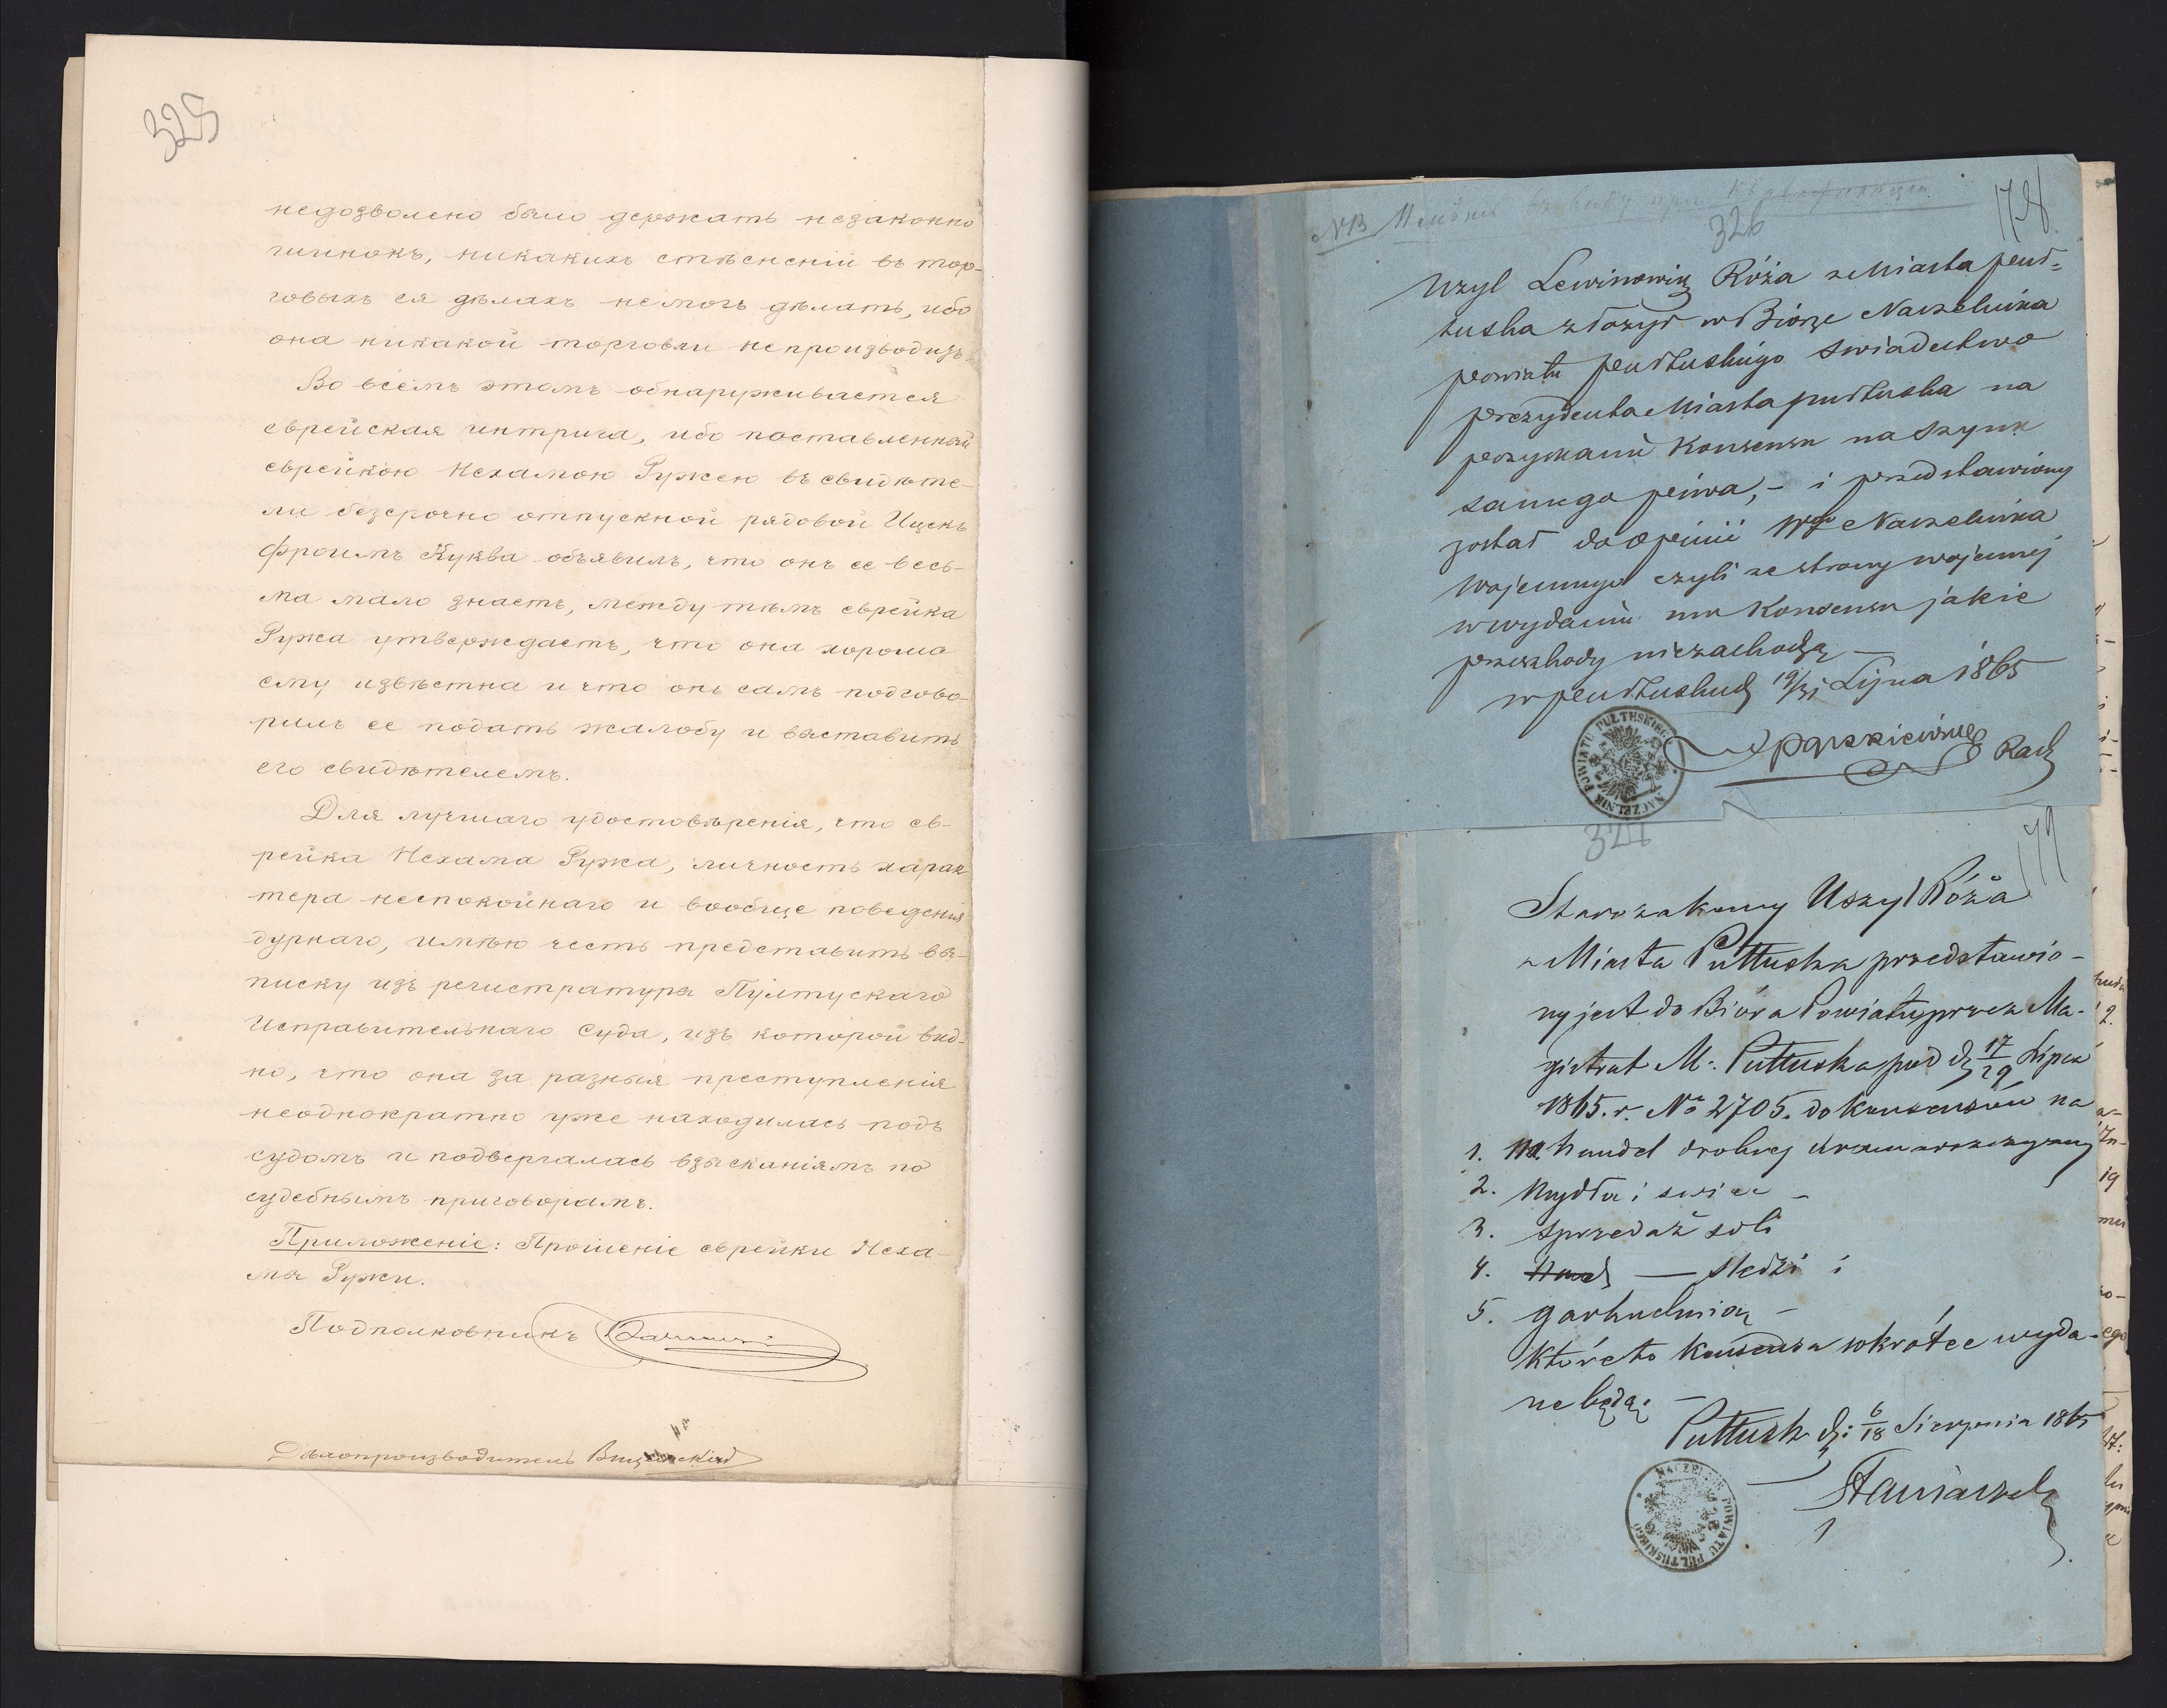 325
недозволено было держать незаконно
шинокъ, никакихъ стѣсненій въ тор-
говыхъ ея дѣлахъ немогъ дѣлать, ибо
она никакой торговли непроизводитъ.
Во всемъ этомъ обнаруживается
еврейская интрига, ибо поставленный
еврейкою Нехамою Ружею въ свидѣте-
ли безсрочно отпускной рядовой Ицекъ
Фроимъ Куква объявилъ, что онъ ее весь-
ма мало знаетъ, между тѣмъ еврейка
Ружа утверждаетъ, что она хорошо
ему извѣстна и что онъ самъ подгово-
рилъ ее подать жалобу и выставить
его свидѣтелемъ.
Для лучшаго удостовѣренія, что ев-
рейка Нехама Ружа, личность харак
тера неспокойнаго и вообще поведенія
дурнаго, имѣю честь представить вы-
писку изъ регистратуры Пултускаго
Исправительнаго Суда, изъ которой вид-
но, что она за разныя преступленія
неоднократно уже находилась подъ
судомъ и подвергалась взысканіямъ по
судебнымъ приговорамъ.
Приложеніе: Прошеніе еврейки Неха-
мы Ружи.
Подполковникъ
Дѣлопроизводитель
№13
326
178.
Uzyl Lewinowicz Róża z Miasta puł-
tuska złożył w Biórze Naczelnika
powiatu pułtuskiego swiadectwo
prezydenta Miasta pułtuska na
pozyskanie Konsensu na Szynk
samego piwa, - i przedstawiony
został do opinii Wgo Naczelnika
Wojennego czyli ze strony wojennej
w wydaniu mu Konsensu jakie
przeszkody niezachodzą -
w pułtusku d 19/31 Lipca 1865
Radz
NACZELNIK POWIATU PUŁTUSKIEGO
327
179
Starozakonny Uszyl Róża
z Miasta Pułtuska przedstawio-
ny jest do Bióra Powiatu przez Ma-
gistrat M: Pułtuska pod d 17/29 Lipca
1865. r. No 2705. do konsensów na
1. handel drobnej
2. Mydła i swiec -
3. sprzedaż soli
4. — sledzi i
5. garkuchnią -
któreto konsensa wkrótce wyda-
ne będą. -
Pułtusk d: 6/18 Sierpnia 1865
NACZELNIK POWIATU PUŁTUSKIEGO